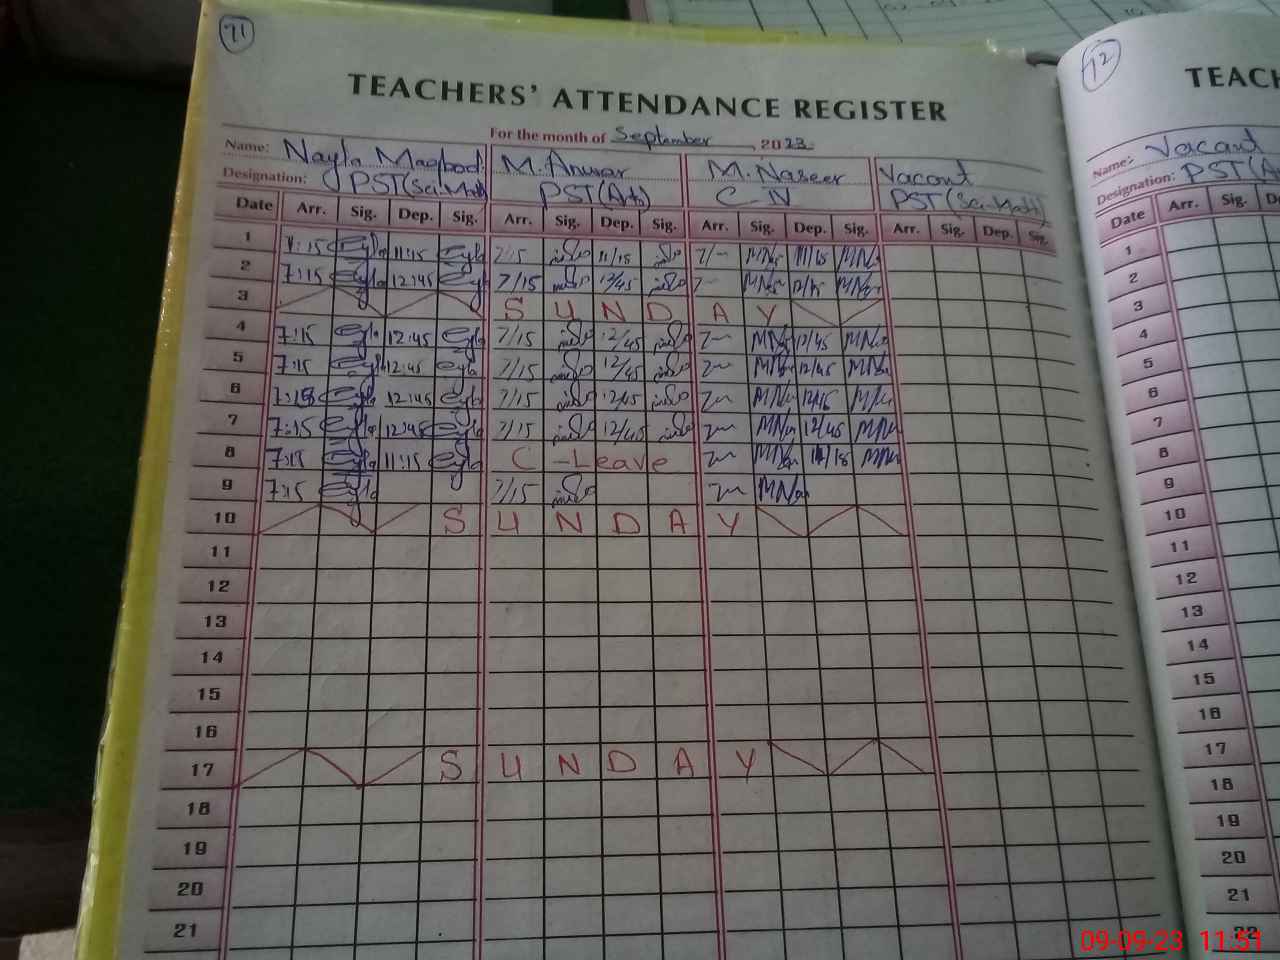 71
TEACHERS' ATTENDANCE REGISTER
For the month of September, 2023
Name: Nayla Maqbool M. Anwar M. Naseer Vacant
Designation: PST(Sci-Math) PST(Arts) C-IV PST(Sci-Math)
Date Arr. Sig. Dep. Sig. Arr. Sig. Dep. Sig. Arr. Sig. Dep. Sig. Arr. Sig. Dep. Sig.
1 7:15 11:15 7/15 11/15 7/— 11/15
2 7:15 12:45 7/15 12/45 7— 12/45
3 SUNDAY
4 7:15 12:45 7/15 12/45 7— 12/45
5 7:15 12:45 7/15 12/45 7— 12/45
6 7:15 12:45 7/15 12/45 7— 12/45
7 7:15 12:45 7/15 12/45 7— 12/45
8 7:15 11:15 C-Leave 7— 11/15
9 7:15 7/15 7—
10 SUNDAY
11
12
13
14
15
16
17 SUNDAY
18
19
20
21
72
TEACH
Name: Vacant
Designation: PST(A
Date Arr. Sig. De
1
2
3
4
5
6
7
8
9
10
11
12
13
14
15
16
17
18
19
20
21
22
09-09-23 11:51